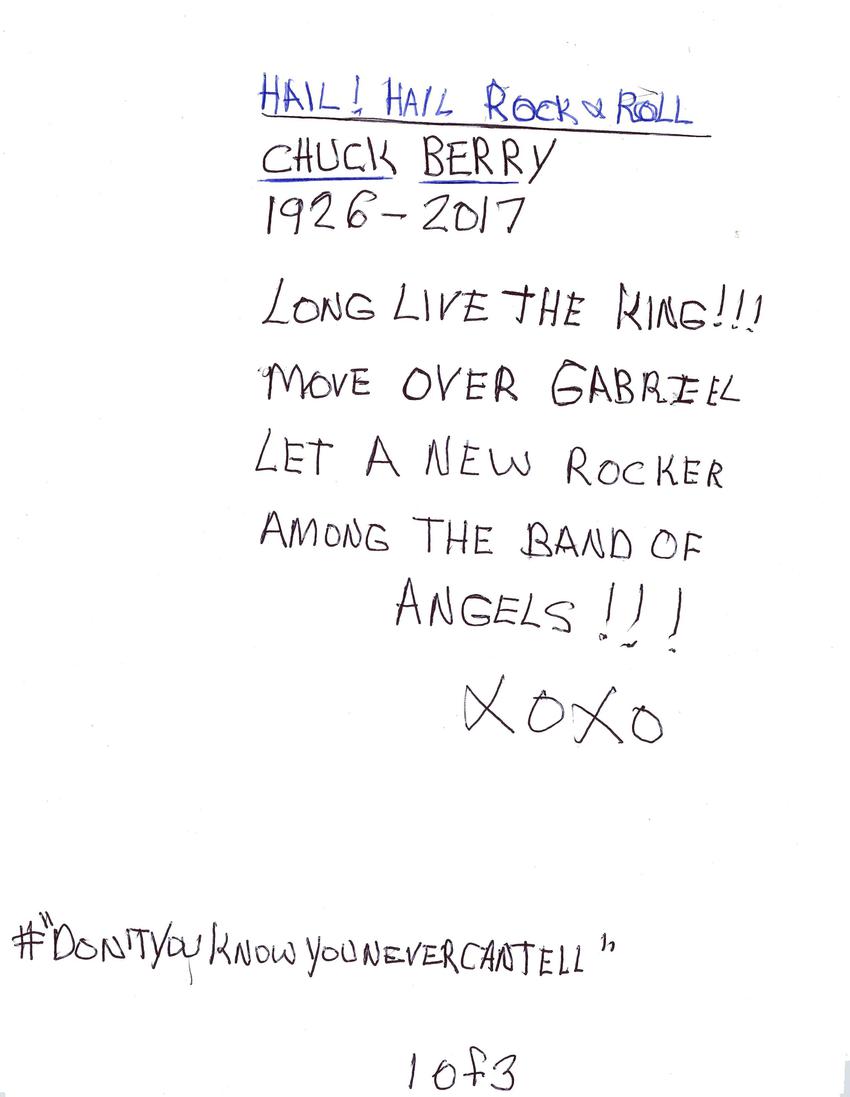 HAIL! HAIL ROCK & ROLL
CHUCK BERRY
1926-2017
LONG LIVE THE KING!!!
MOVE OVER GABRIEL
LET A NEW ROCKER
AMONG THE BAND OF
ANGELS!!!
XOXO
#"DON'TYOUKNOWYOUNEVERCANTELL"
1 of 3